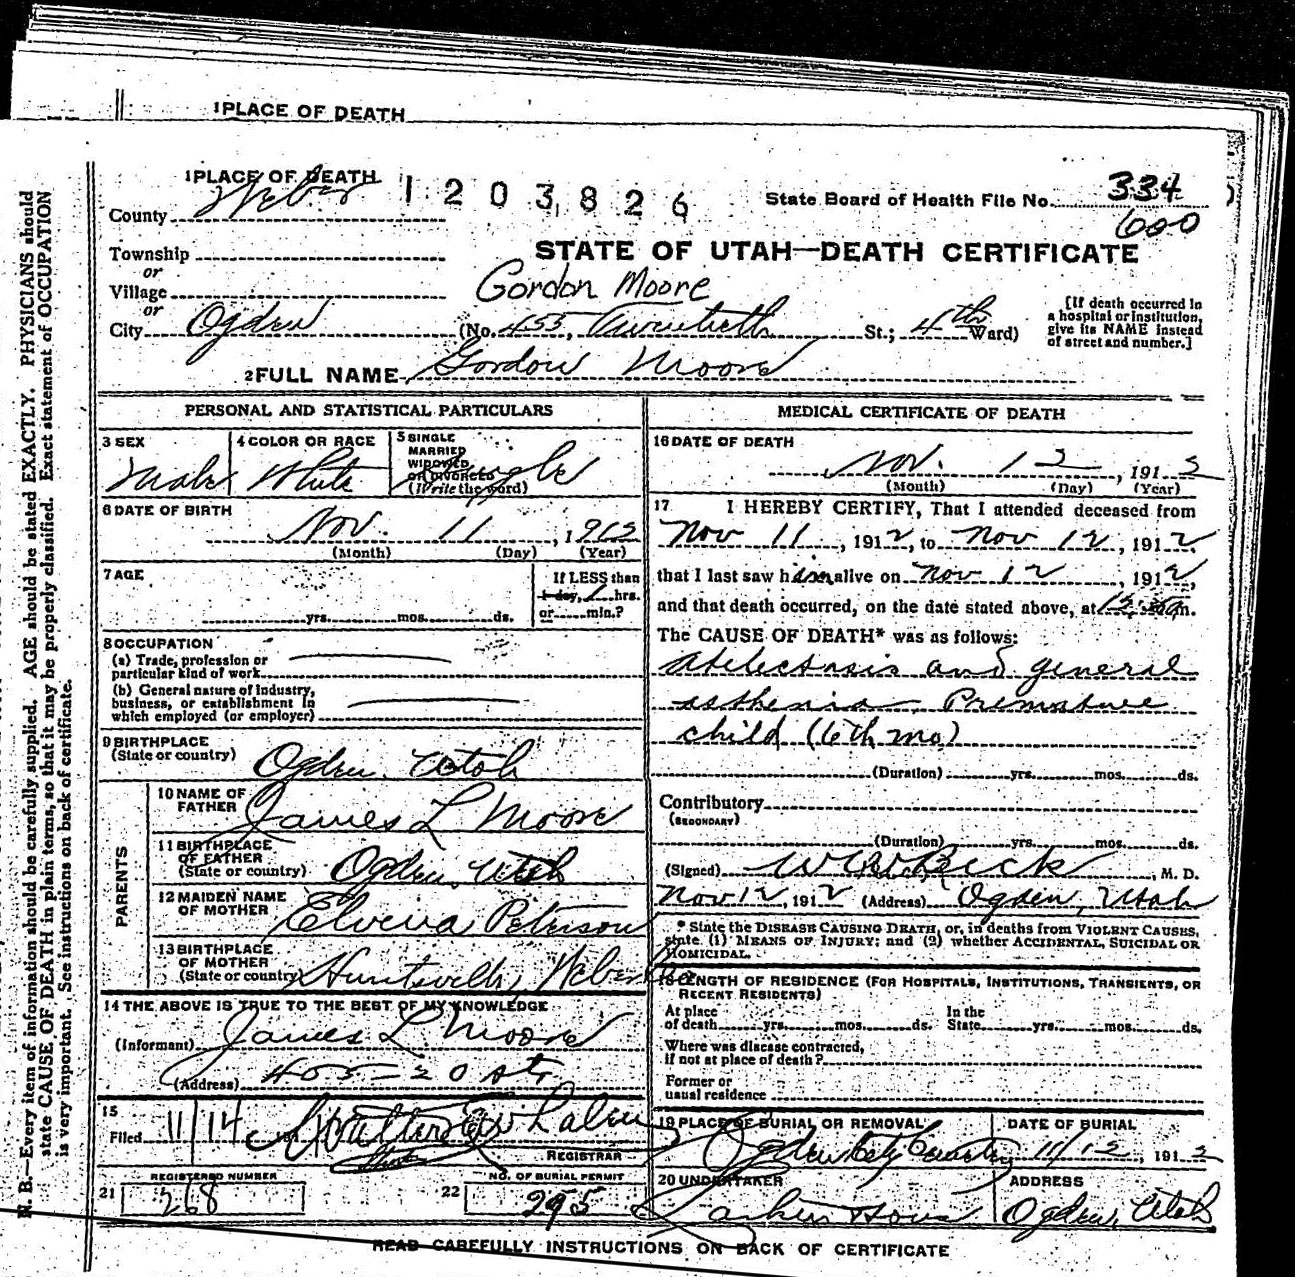 1 PLACE OF DEATH
1 PLACE OF DEATH
1203826
State Board of Health File No. 334
600
County Weber
STATE OF UTAH—DEATH CERTIFICATE
Township
or
Village
Gordon Moore
or
City Ogden (No. 455, Twentieth St.; 4th Ward)
[If death occurred in
a hospital or institution,
give its NAME instead
of street and number.]
2 FULL NAME Gordon Moore
PERSONAL AND STATISTICAL PARTICULARS
3 SEX
Male
4 COLOR OR RACE
White
5 SINGLE
MARRIED
WIDOWED
OR DIVORCED
(Write the word)
Single
6 DATE OF BIRTH
Nov. 11, 1912
(Month) (Day) (Year)
7 AGE
yrs. mos. ds.
If LESS than
1 day, 1 hrs.
or min.?
8 OCCUPATION
(a) Trade, profession or
particular kind of work
(b) General nature of industry,
business, or establishment in
which employed (or employer)
9 BIRTHPLACE
(State or country) Ogden, Utah
PARENTS
10 NAME OF
FATHER James L Moore
11 BIRTHPLACE
OF FATHER
(State or country) Ogden, Utah
12 MAIDEN NAME
OF MOTHER Elvera Peterson
13 BIRTHPLACE
OF MOTHER
(State or country) Huntsville, Weber
14 THE ABOVE IS TRUE TO THE BEST OF MY KNOWLEDGE
(Informant) James L. Moore
(Address) 455-20 St.
15
Filed 11/14
REGISTRAR
REGISTERED NUMBER
21 268
NO. OF BURIAL PERMIT
22 295
MEDICAL CERTIFICATE OF DEATH
16 DATE OF DEATH
Nov. 12, 1912
(Month) (Day) (Year)
17 I HEREBY CERTIFY, That I attended deceased from
Nov 11, 1912, to Nov 12, 1912,
that I last saw him alive on Nov 12, 1912,
and that death occurred, on the date stated above, at m.
The CAUSE OF DEATH* was as follows:
Atelectasis and general
asthenia. Premature
child (6th mo)
(Duration) yrs. mos. ds.
Contributory
(SECONDARY)
(Duration) yrs. mos. ds.
(Signed) , M. D.
Nov 12, 1912 (Address) Ogden, Utah
* State the DISEASE CAUSING DEATH, or, in deaths from VIOLENT CAUSES,
state (1) MEANS OF INJURY; and (2) whether ACCIDENTAL, SUICIDAL OR
HOMICIDAL.
18 LENGTH OF RESIDENCE (FOR HOSPITALS, INSTITUTIONS, TRANSIENTS, OR
RECENT RESIDENTS)
At place
of death yrs. mos. ds.
In the
State yrs. mos. ds.
Where was disease contracted,
if not at place of death?
Former or
usual residence
19 PLACE OF BURIAL OR REMOVAL
Ogden City Cemetery
DATE OF BURIAL
11/12, 1912
20 UNDERTAKER
ADDRESS
Ogden, Utah
READ CAREFULLY INSTRUCTIONS ON BACK OF CERTIFICATE
N. B.—Every item of information should be carefully supplied. AGE should be stated EXACTLY. PHYSICIANS should
state CAUSE OF DEATH in plain terms, so that it may be properly classified. Exact statement of OCCUPATION
is very important. See instructions on back of certificate.